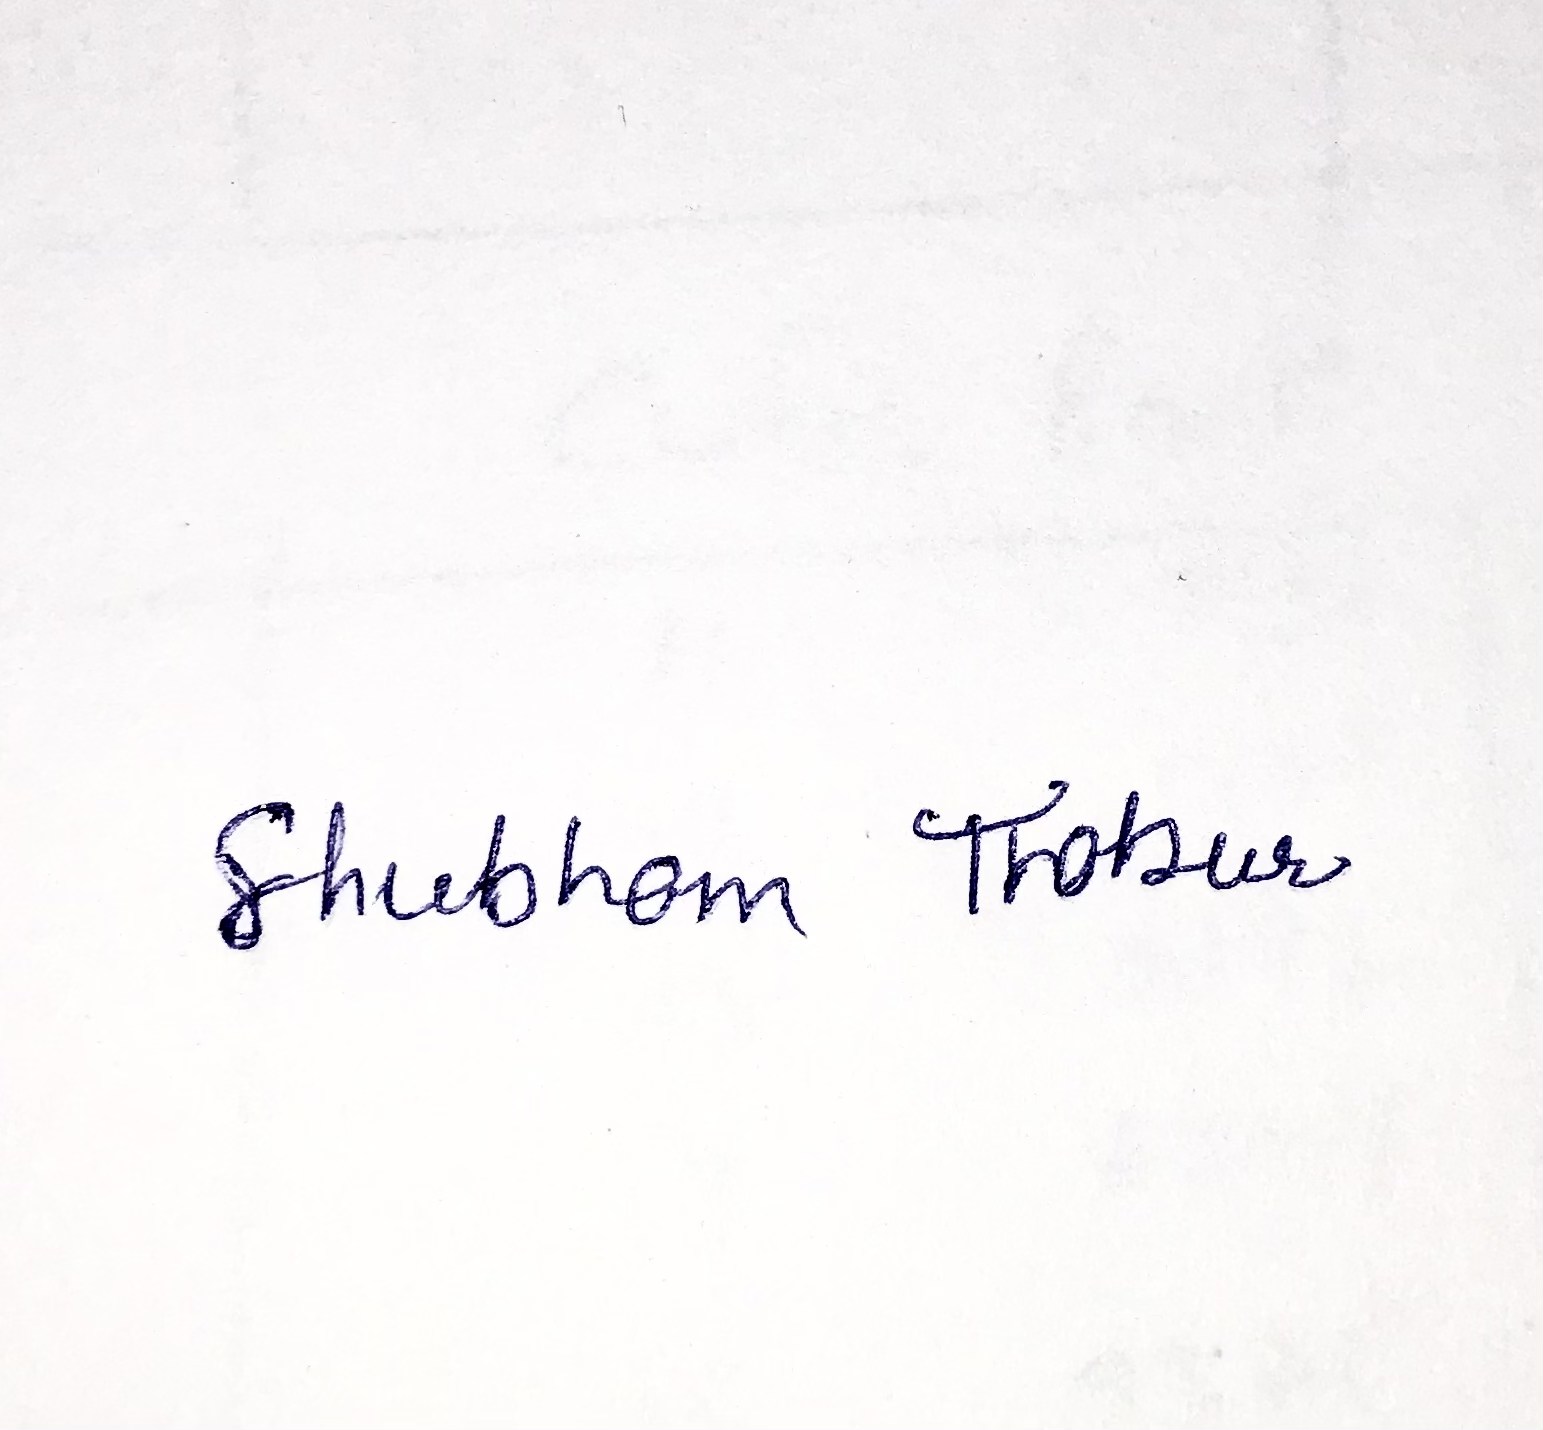 Shubham Thakur